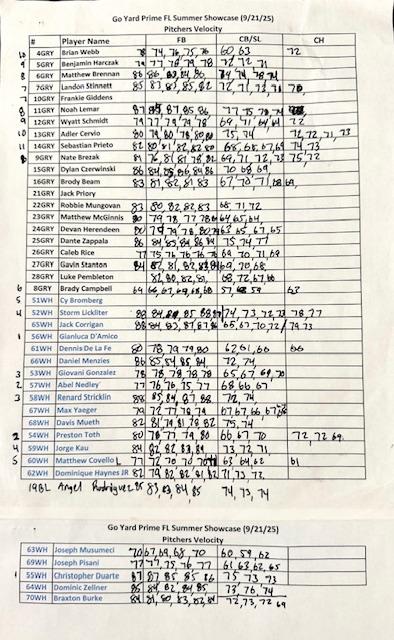 Go Yard Prime FL Summer Showcase (9/21/25)
Pitchers Velocity
# Player Name FB CB/SL CH
10 4GRY Brian Webb 74, 76, 75, 76 60, 63 72
9 5GRY Benjamin Harczak 79 77 78 79 78 72 72 71
6 6GRY Matthew Brennan 86 86, 83, 84, 86 74 78 74
7 7GRY Landon Stinnett 85 83, 83, 85, 82 72, 71, 73, 71 70,
7 10GRY Frankie Giddens
8 11GRY Noah Lemar 87 85 87 85 86 77 75 78 74
9 12GRY Wyatt Schmidt 79 77 79 79 78 69, 71 69 72
10 13GRY Adler Cervio 80 79 80 78 80 80 75, 74 72, 72, 71, 73
11 14GRY Sebastian Prieto 82 80, 81 82, 82 80 68, 68, 67, 69 74, 73
8 9GRY Nate Brezak 81 76, 81, 81 78, 82 69, 71, 72, 73 75, 72
15GRY Dylan Czerwinski 86 84, 85, 86, 84 86 70 68 69,
16GRY Brody Beam 83 81, 82, 81 83 67, 70, 71, 68
21GRY Jack Priory
22GRY Robbie Mungovan 83 80, 82, 82, 83 68 71, 72
23GRY Matthew McGinnis 80 79 78 77 78 64, 65, 64,
24GRY Devan Herendeen 80 79 79 78, 80 63 65, 67, 65
25GRY Dante Zappala 86 84, 85, 84 86 84 75, 74, 77
26GRY Caleb Rice 77 75 76 76 76 76 69 70, 71, 69
27GRY Gavin Stanton 84 82, 81, 82 69, 70, 68,
28GRY Luke Pembleton 82, 80, 82, 81, 68, 72, 67, 66
6 8GRY Brady Campbell 69 66, 67, 68, 68, 68 57, 58, 59 63
5 51WH Cy Bromberg
4 52WH Storm Lickliter 88 84, 85 88 74, 73, 72, 73 78, 77
65WH Jack Corrigan 88 84, 83, 87, 87 65, 67, 70, 72 79, 73
1 56WH Gianluca D'Amico
61WH Dennis De La Fe 80 78 79 79 80 62, 61, 66 66
66WH Daniel Menzies 86 85, 84 85 84, 72, 74
3 53WH Giovani Gonzalez 78 78 78 78 78 65, 67, 69, 70
2 57WH Abel Nedley 77 76 76 75 77 68 66 67
3 58WH Renard Stricklin 88 85, 84, 87, 88 72, 74,
67WH Max Yaeger 79 72 77 78 79 67, 67, 66, 67
68WH Davis Mueth 82 81, 79, 81, 78, 82 75, 74,
2 54WH Preston Toth 80 78 77 79, 80 66, 67, 70 72, 72 69.
4 59WH Jorge Kau 84 82, 82 83, 84 73, 72, 71,
5 60WH Matthew Covello L 77 72 70 70 63 64, 62 61
62WH Dominique Haynes JR 82 79, 82, 82, 81, 82 71, 73, 72,
19BL Angel Rodriguez 85 83, 83, 84, 85 74, 73, 74
Go Yard Prime FL Summer Showcase (9/21/25)
Pitchers Velocity
63WH Joseph Musumeci 70 67, 69, 68, 70 60, 59, 62
69WH Joseph Pisani 77 77, 75, 76 77 61, 63, 62, 65
1 55WH Christopher Duarte 87 87 85 85 86 75 73 73
64WH Dominic Zellner 85 84 82, 84, 85 73, 76, 74
70WH Braxton Burke 84 81, 80, 83, 82, 84 72, 73, 72 69